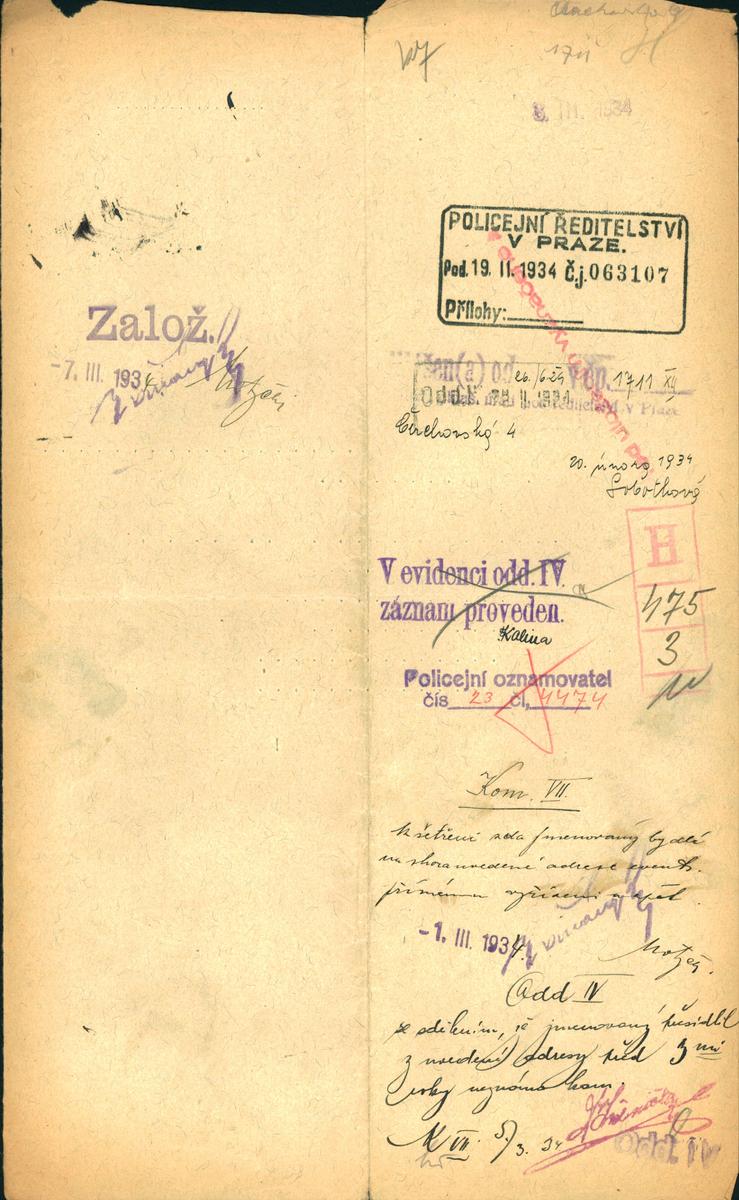 Založ.
-7. III. 1934
Motzeš
3. III. 1934
POLICEJNÍ ŘEDITELSTVÍ
V PRAZE.
Pod. 19. II. 1934 Č.j. 063107
Přílohy:
26./6 24 v čp. 1711 XII
Čerchovská 4
20. února 1934
Sobotková
V evidenci odd. IV.
záznam proveden.
Kalina
H
475
3
Policejní oznamovatel
čís 23 čl. 4474
Kom. VII.
k šetření zda jmenovaný bydlí
na shora uvedené adrese event.
přímému vyřízení a zpět.
-1. III. 1934.
Odd IV
se sdělením, že jmenovaný přesídlil
z uvedené adresy před 3 mi
roky neznámo kam.
K VII. 5/3. 34
Odd. IV